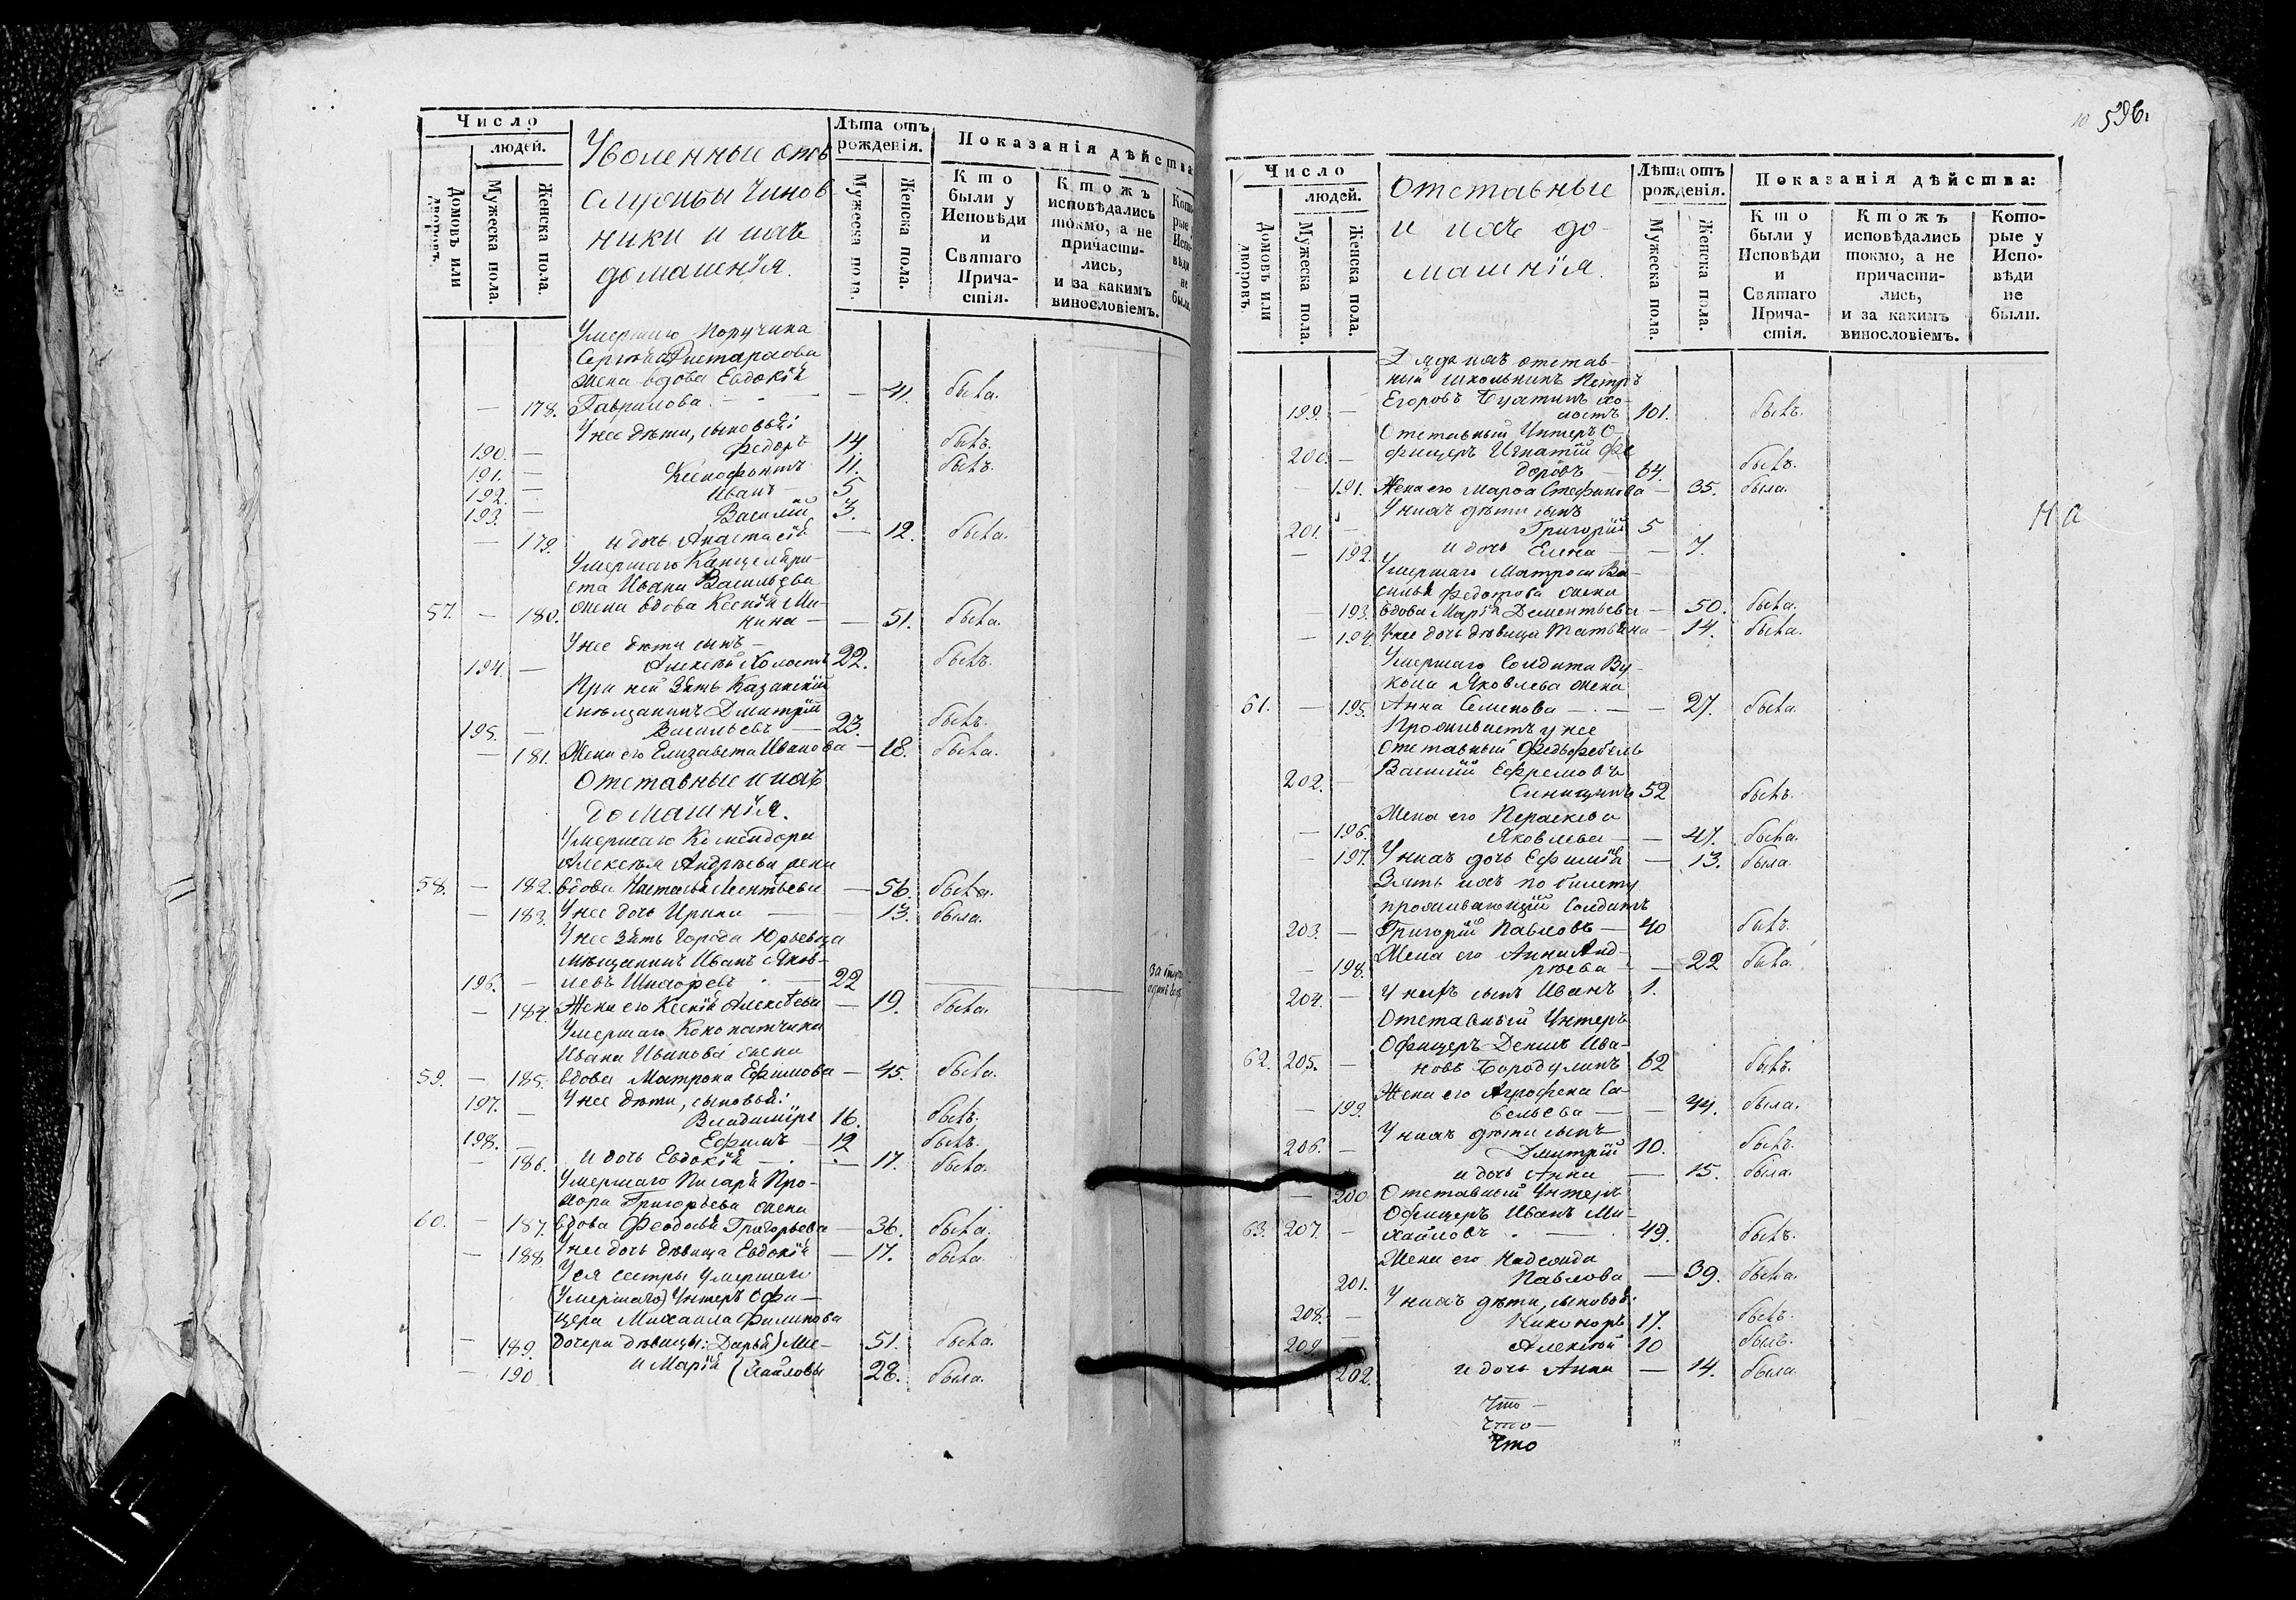 Число
людей.
Домовъ или дворовъ.
Мужеска пола.
Женска пола.
Уволенные отъ
службы Чинов
ники и ихъ
домашенія.
Лѣта отъ рожденія.
Мужеска пола.
Женска пола.
Показанія дѣйства
Кто были у Исповѣди и Святаго Прича-стія.
Ктожъ исповѣдались токмо, а не причасти-лись, и за какимъ винословіемъ.
Кото рые Испо вѣди не были
Умершаго Поручика
жена вдова Евдокія
178. Гаврилова — — 41 была.
У нее дѣти, сыновья:
190. — Федоръ 14. былъ.
191. — Ксенофонтъ 11. былъ.
192. — Иванъ 5
193. — Василій 3.
— 179. и дочь Анастасія — 12. была.
Умершаго Канцеляри-
ста Ивана Васильева
57. — 180. жена вдова Ксенія Ми-
нина — — 51. была.
У нее дѣти сынъ —
194. — Алексѣй Холостъ 22. былъ.
При ней Зять Казанскій
мѣщанинъ Дмитрій
195. — Васильевъ — 23. былъ.
— 181. Жена его Елизавета Иванова — 18. была.
Отставные и ихъ
домашнія.
Умершаго Комендора
Алексѣя Андрѣева жена
58. — 182. вдова Наталья Леонтьева — 56 была.
— 183. У нее дочь Ирина — — 13. была.
У нее Зять Города Юрьевца
мѣщанинъ Иванъ Яков-
196. — левъ — 22
— 184. Жена его Ксенія Алексѣева — 19. была.
Умершаго Конопатчика
Ивана Иванова жена
59. — 185. вдова Матрона Ефимова — 45. была.
У нее дѣти, сыновья:
197. — Владимиръ 16. былъ.
198. — Ефимъ — 12 былъ.
— 186. и дочь Евдокія — — 17. была.
Умершаго Писаря Про-
хора Григорьева жена
60. — 187. вдова Феодосья Григорьева — 36. была.
— 188. У нее дочь дѣвица Евдокія — 17. была.
У ея сестры умершаго
(Умершаго) Унтеръ Офи-
цера Михаила Филипова
— 189. дочери дѣвицы: Дарья) Ми- 51. была.
— 190 и Марія (хайловы 28. была.
596.
Число
людей.
Домовъ или дворовъ.
Мужеска пола.
Женска пола.
Отставные
и ихъ до-
машнія.
Лѣта отъ рожденія.
Мужеска пола.
Женска пола.
Показанія дѣйства:
Кто были у Исповѣди и Святаго Прича-стія.
Ктожъ исповѣдались токмо, а не причасти-лись, и за какимъ винословіемъ.
Кото-рые у Испо-вѣди не были.
Дядя ихъ отстав-
ный школьникъ Петръ
Егоровъ хо-
199. — лостъ 101. былъ.
Отставный Унтеръ О-
200. — фицеръ Игнатій Фе
доровъ — 64. былъ.
— 191. Жена его Марфа Стефанова — 35. была.
У нихъ дѣти сынъ
201. — Григорій 5
— 192. и дочь Елена — — 7.
Умершаго Матроса Ва-
силья Федотова жена
— 193. вдова Марія Дементьева — 50. была.
— 194. У нее дочь дѣвица Татьяна — 14. была.
Умершаго Солдата Ву-
кола Яковлева жена
61. — 195. Анна Семенова — — 27. была.
Проживаетъ у нее
отставный Фельдфебель
202. — Василій Ефремовъ
Синицынъ 52 былъ.
Жена его Параскева
— 196. Яковлева — — 47. была.
— 197. У нихъ дочь Ефимія — 13. была.
Зять ихъ по билету
проживающій Солдатъ
203. — Григорій Павловъ — 40 былъ.
Жена его Анна Анд-
— 198. рѣева — — 22 была.
204. — У нихъ сынъ Иванъ 1.
Отставный Унтеръ
Офицеръ Денисъ Ива-
62. 205. — новъ Бородулинъ 62 былъ.
Жена его Агрофена Са-
— 199. вельева — — 44. была.
У нихъ дѣти сынъ
206. — Дмитрій 10. былъ.
и дочь Анна — 15. была.
— 200. Отставный Унтеръ
Офицеръ Иванъ Ми-
63. 207. — хайловъ — 49. былъ.
Жена его
201. Павлова — 39. была.
У нихъ дѣти, сыновья:
208. — Никоноръ 17. былъ.
209. — Алексѣй 10 былъ.
202. и дочь Анна — 14. была.
Что —
Что —
Что